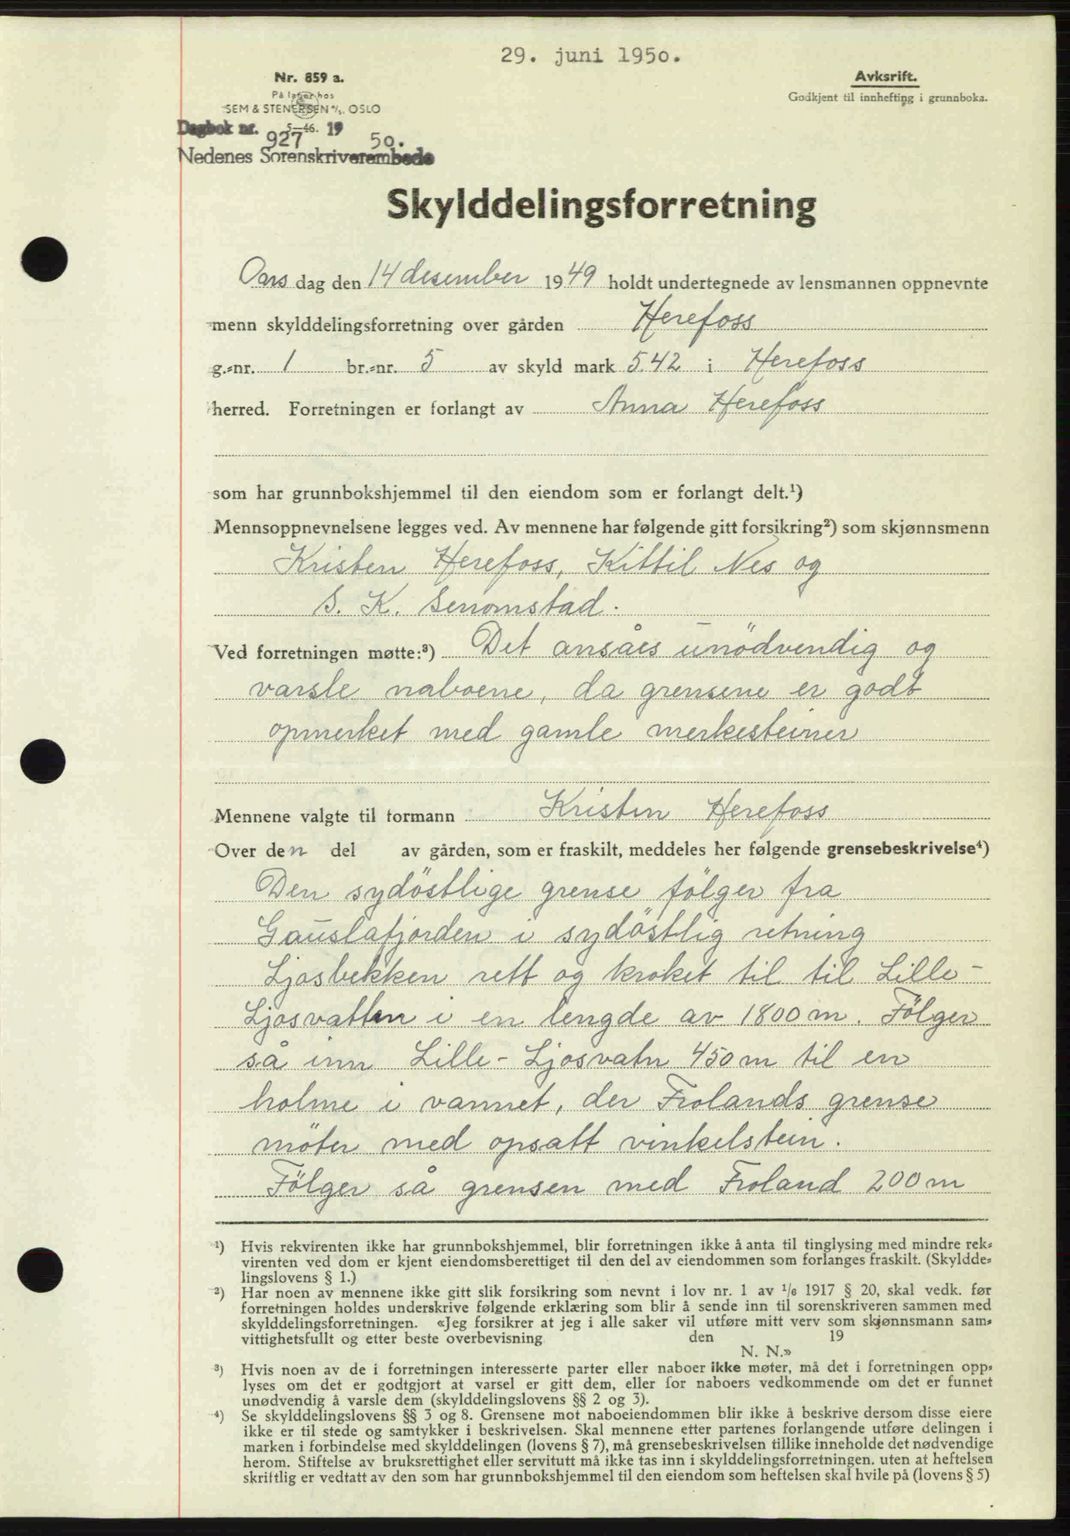 29. juni 1950.
Nr. 859 a.
På lager hos
SEM & STENERSEN A/S. OSLO
5—46.
Avksrift.
Godkjent til innhefting i grunnboka.
Dagbok nr. 927 1950.
Nedenes Sorenskriverembede
Skylddelingsforretning
Ons dag den 14 desember 1949 holdt undertegnede av lensmannen oppnevnte
menn skylddelingsforretning over gården Herefoss
g.-nr. 1 br.-nr. 5 av skyld mark 5.42 i Herefoss
herred. Forretningen er forlangt av Anna Herefoss
som har grunnbokshjemmel til den eiendom som er forlangt delt.¹)
Mennsoppnevnelsene legges ved. Av mennene har følgende gitt forsikring²) som skjønnsmenn
Kristen Herefoss, Kittil Nes og
S. K. Senomstad.
Ved forretningen møtte:³) Det ansåes unödvendig og
varsle naboene, da grensene er godt
opmerket med gamle merkesteiner
Mennene valgte til formann Kristen Herefoss
Over den del av gården, som er fraskilt, meddeles her følgende grensebeskrivelse⁴)
Den sydöstlige grense fölger fra
Gauslafjorden i sydöstlig retning
Ljosbekken rett og kroket til til Lille-
Ljosvatten i en lengde av 1800 m. Fölger
så inn Lille-Ljosvatn 450 m til en
holme i vannet, der Frolands grense
möter med opsatt vinkelstein.
Fölger så grensen med Froland 200 m
¹) Hvis rekvirenten ikke har grunnbokshjemmel, blir forretningen ikke å anta til tinglysing med mindre rek-
virenten ved dom er kjent eiendomsberettiget til den del av eiendommen som forlanges fraskilt. (Skyldde-
lingslovens § 1.)
²) Har noen av mennene ikke gitt slik forsikring som nevnt i lov nr. 1 av 1/6 1917 § 20, skal vedk. før
forretningen holdes underskrive følgende erklæring som blir å sende inn til sorenskriveren sammen med
skylddelingsforretningen. «Jeg forsikrer at jeg i alle saker vil utføre mitt verv som skjønnsmann sam-
vittighetsfullt og etter beste overbevisning den 19
N. N.»
³) Hvis noen av de i forretningen interesserte parter eller naboer ikke møter, må det i forretningen opp-
lyses om det er godtgjort at varsel er gitt dem, eller for naboers vedkommende om det er funnet
unødvendig å varsle dem (skylddelingslovens §§ 2 og 3).
⁴) Se skylddelingslovens §§ 3 og 8. Grensene mot naboeiendommen blir ikke å beskrive dersom disse eiere
ikke er til stede og samtykker i beskrivelsen. Skal mennene etter partenes forlangende utføre delingen i
marken i forbindelse med skylddelingen (lovens § 7), må grensebeskrivelsen tillike inneholde det nødvendige
herom. Stiftelse av bruksrettighet eller servitutt må ikke tas inn i skylddelingsforretningen, uten at heftelsen
skriftlig er vedtatt av den som har grunnbokshjemmel til den eiendom som heftelsen skal hvile på (lovens § 5)